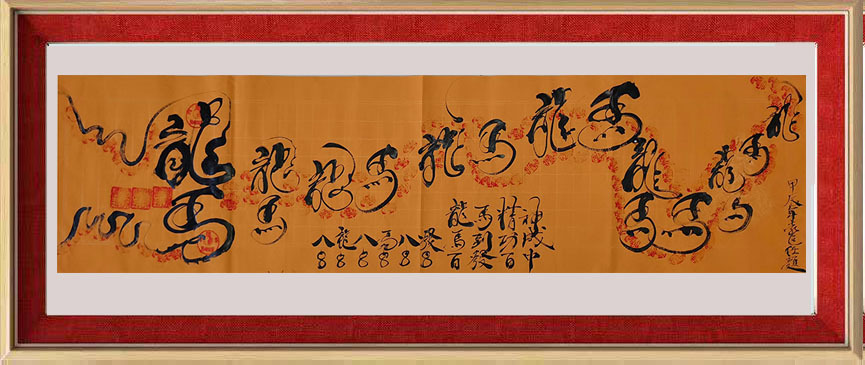 龍馬
龍馬
龍馬
龍馬
龍馬
龍馬馬
龍馬
龍
龍馬精神
馬到功成
百發百中
八龍八馬八發
888888
甲辰年題